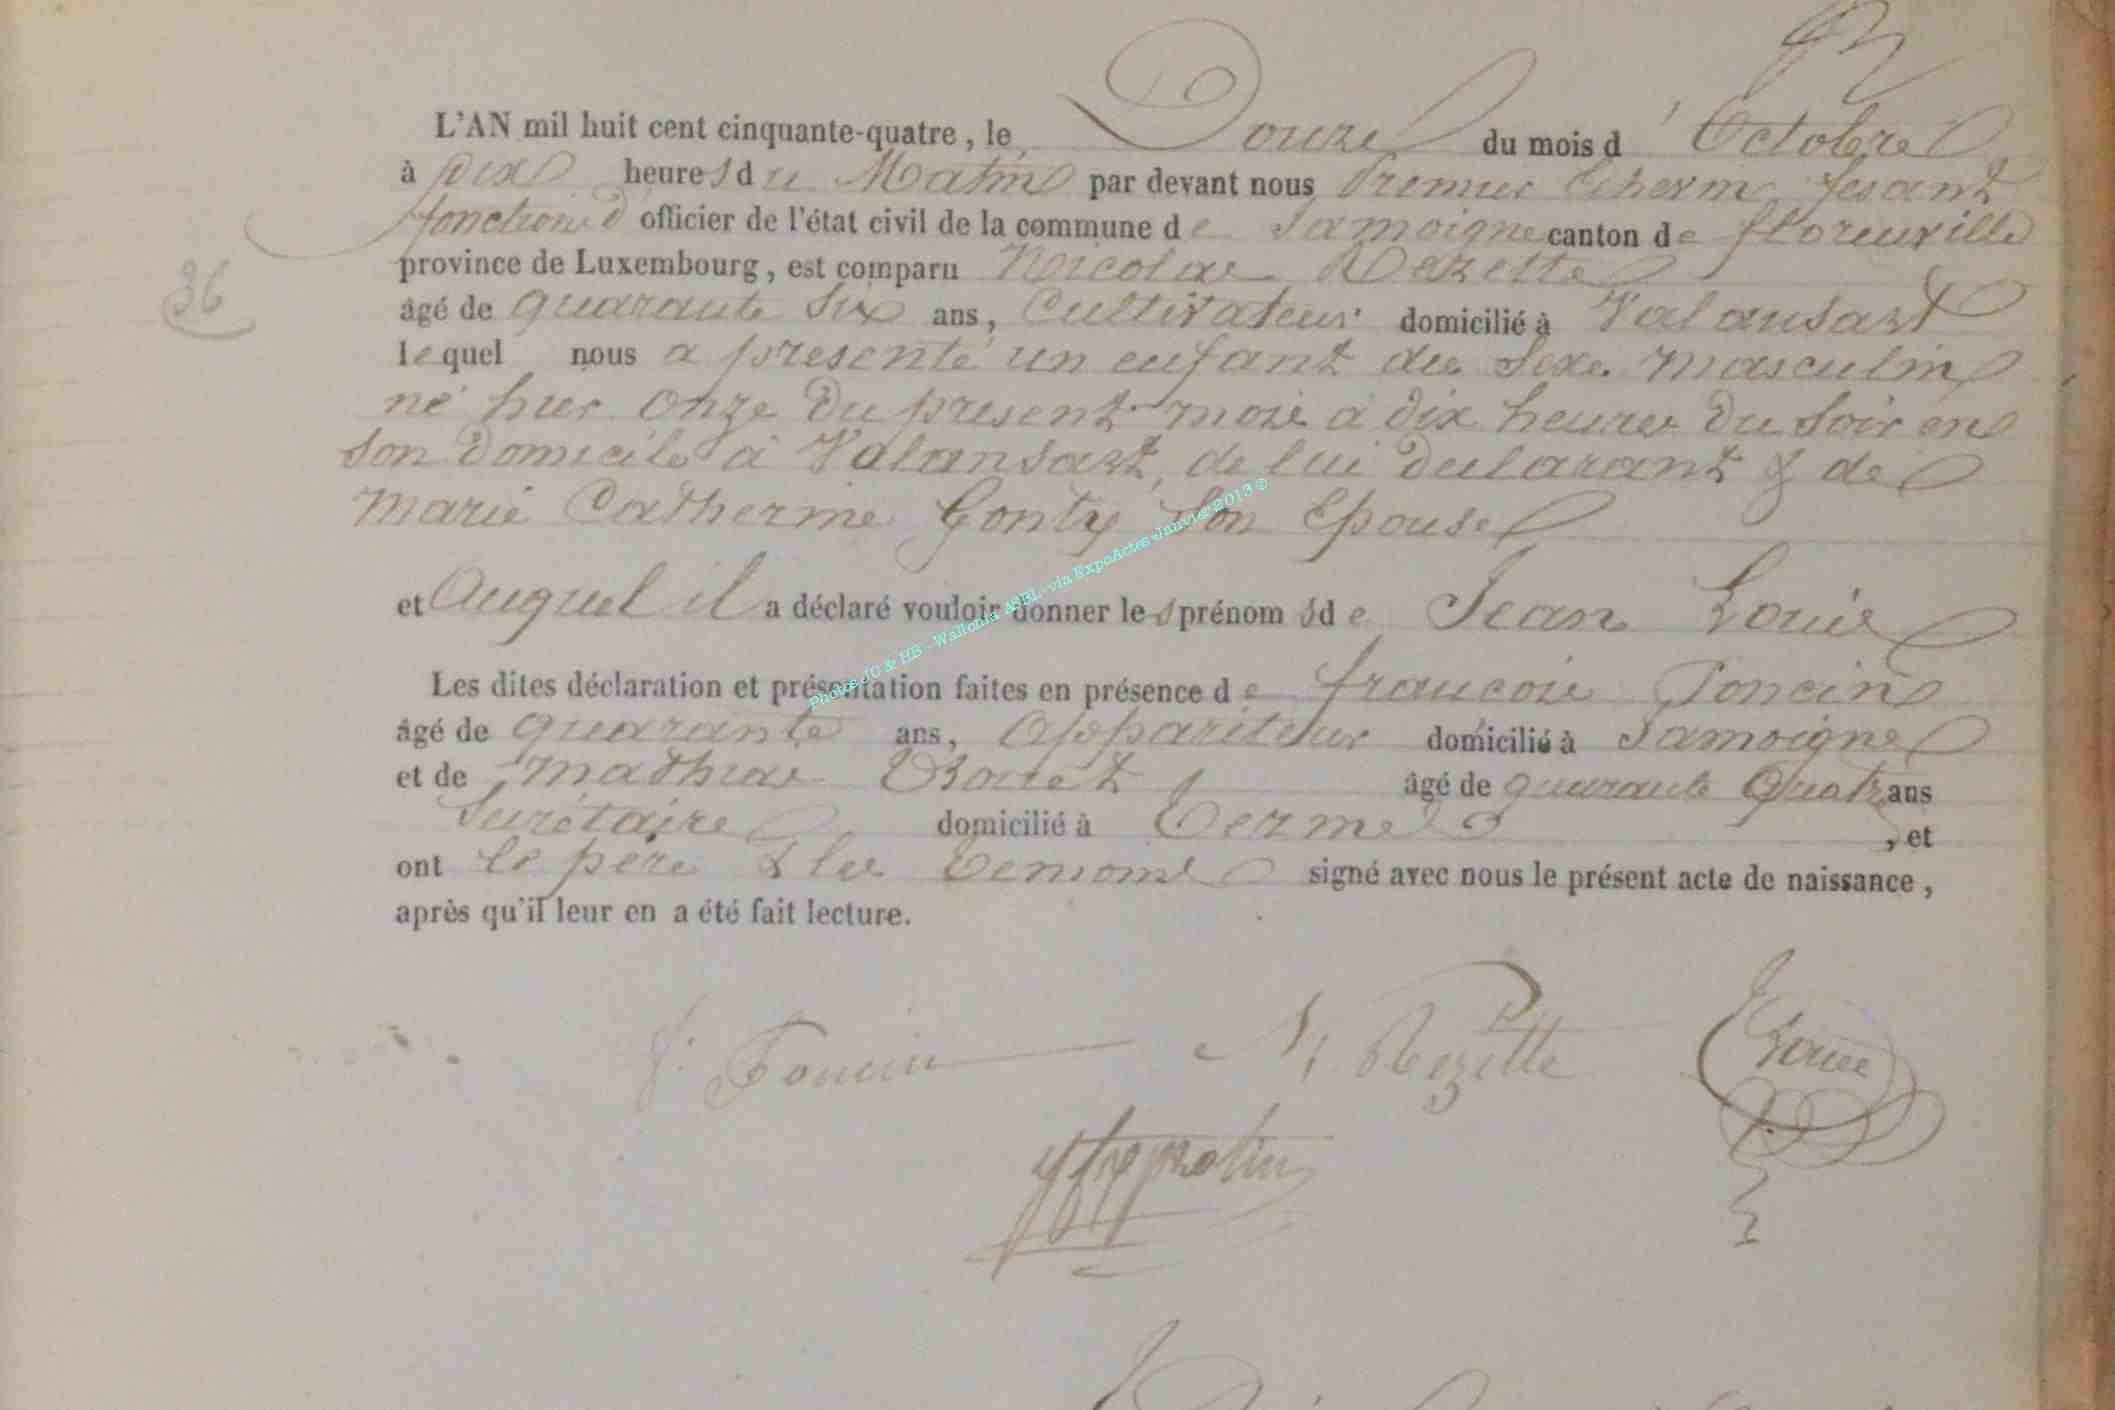 L'AN mil huit cent cinquante-quatre, le Douze du mois d'Octobre
à Dix heures du Matin par devant nous Premier Echevin fesant
fonction d'officier de l'état civil de la commune de Jamoigne canton de florenville
province de Luxembourg, est comparu Nicolas Rezette
36
âgé de quarante Six ans, Cultivateur domicilié à Valansart
lequel nous a présenté un enfant du Sexe masculin
né hier onze du présent mois à dix heures du Soir en
son Domicile à Valansart, de lui déclarant & de
Marie Catherine Gonty Son Epouse
et Auquel il a déclaré vouloir donner les prénoms de Jean Louis
Photos JC & HS - Wallonia ASBL - via ExpoActes Janvier 2013 ©
Les dites déclaration et présentation faites en présence de francois Poncin
âgé de quarante ans, Appariteur domicilié à Jamoigne
et de Mathias âgé de quarante Quatre ans
Secrétaire domicilié à Termes, et
ont le père & les témoins signé avec nous le présent acte de naissance,
après qu'il leur en a été fait lecture.
f. Poncin N. Rezette